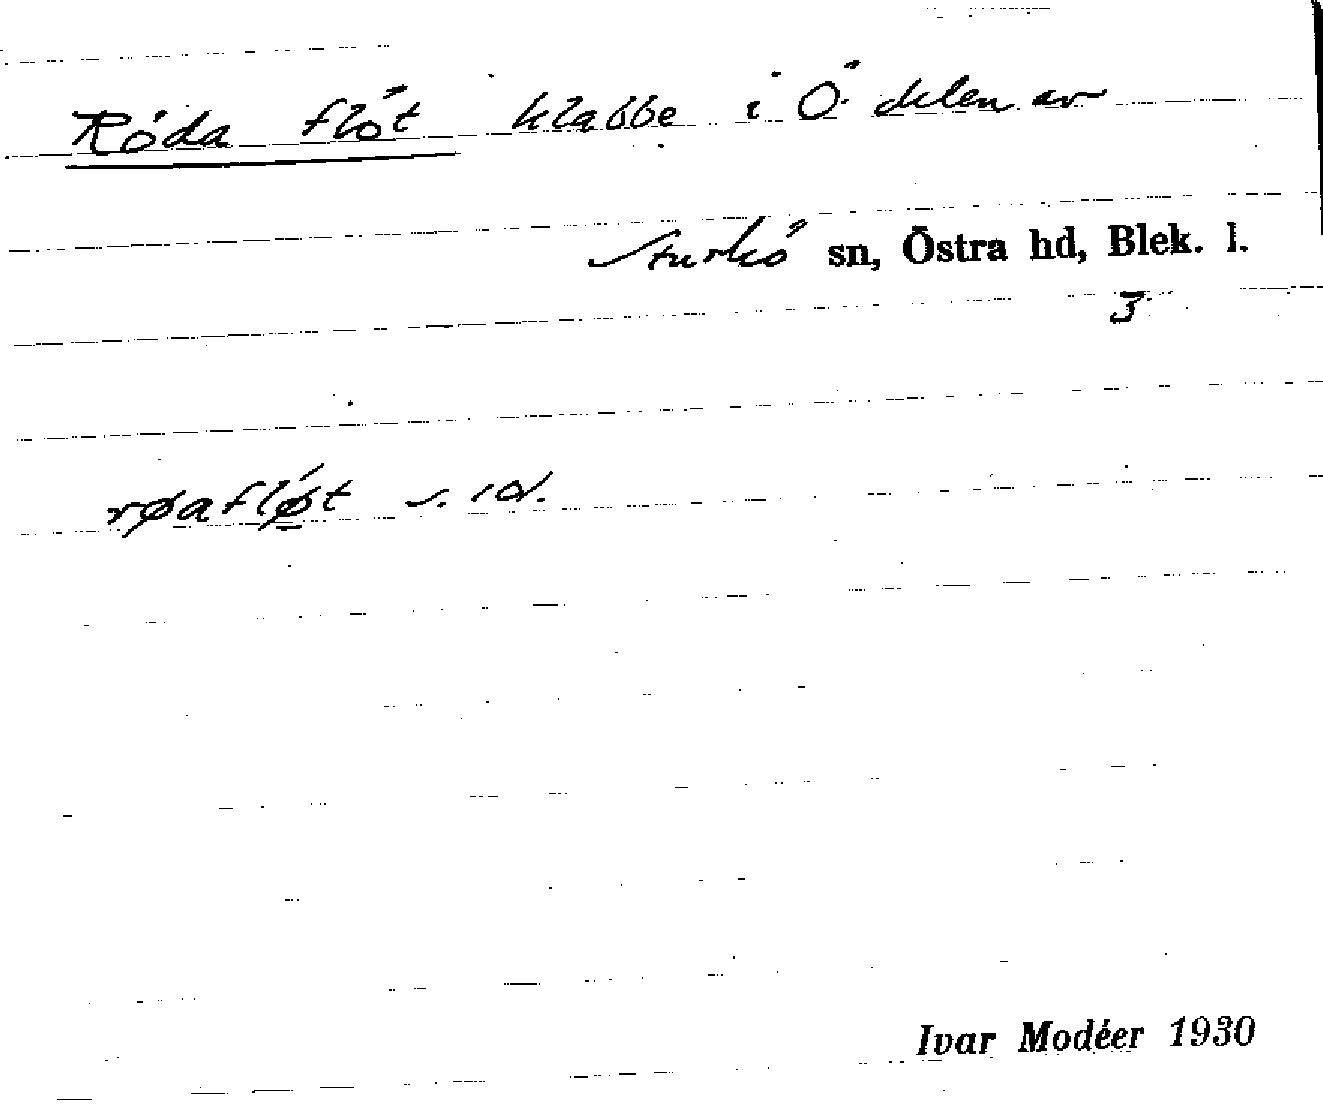 Röda flöt klabbe i Ö. delen av
Sturkö sn, Östra hd, Blek. l.
3
røaflǿ̱t s. id.
Ivar Modéer 1930